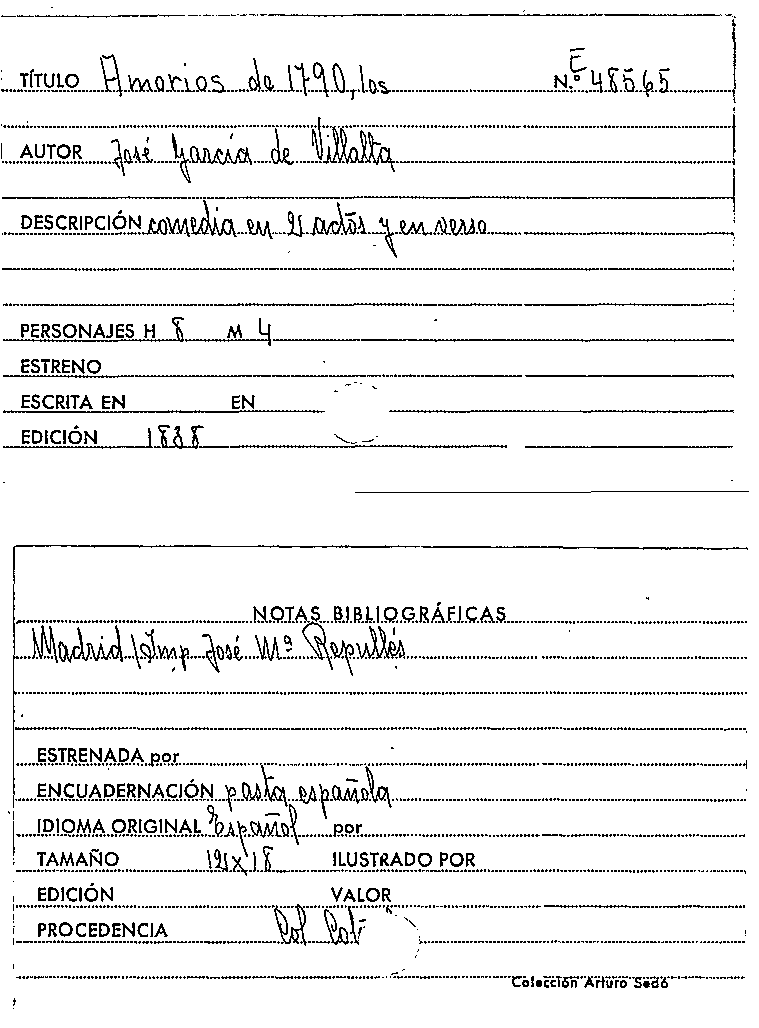 TÍTULO Amorios de 1790, los N.º E 48565
AUTOR José García de Villalta
DESCRIPCIÓN comedia en 2 actos y en verso
PERSONAJES H 8 M 4
ESTRENO
ESCRITA EN EN
EDICIÓN 1838
NOTAS BIBLIOGRÁFICAS
Madrid / Imp José Mª Repullés
ESTRENADA por
ENCUADERNACIÓN pasta española
IDIOMA ORIGINAL Español por
TAMAÑO 12x18 ILUSTRADO POR
EDICIÓN VALOR
PROCEDENCIA Col Cot
Colección Arturo Sedó